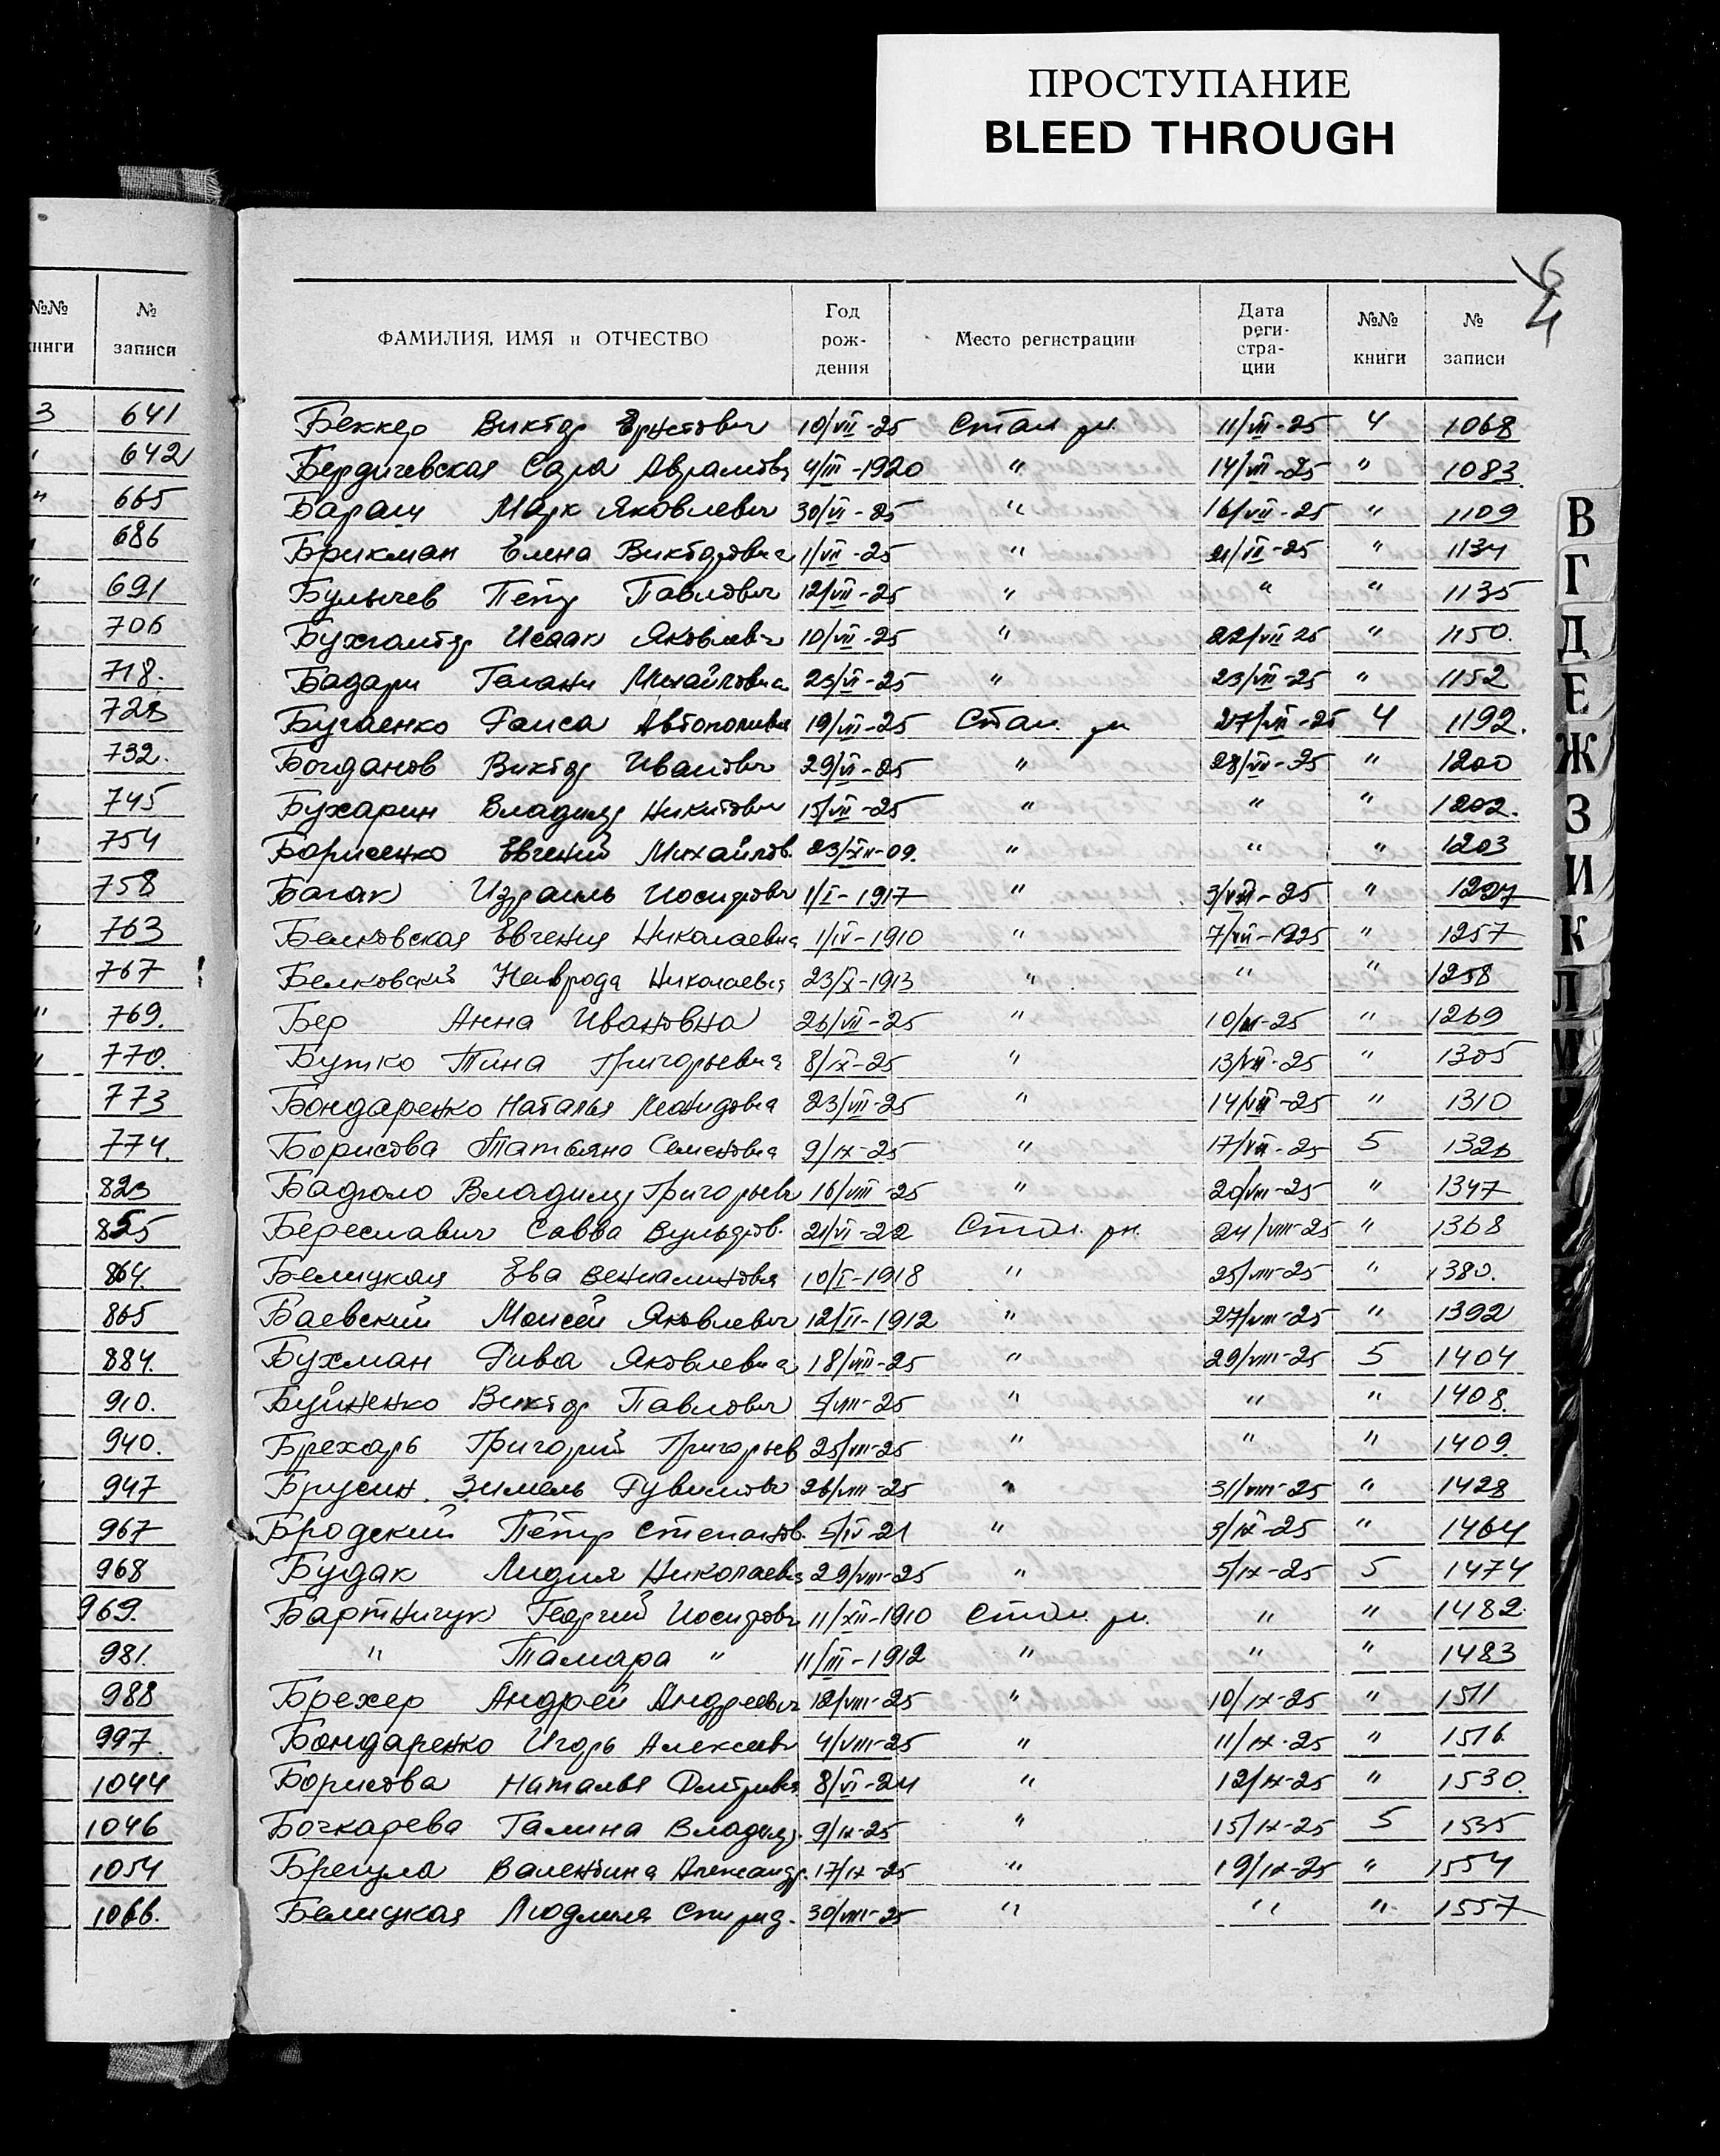 ПРОСТУПАНИЕ
BLEED THROUGH
6
4
№№ книги № записи
3 641
642
" 665
686
" 691
706
718.
728
732.
745
754
758
763
767
" 769.
770.
773
774.
823
855
864.
865
884.
910.
940.
947
967
968
969.
981.
988
997.
1044
1046
1054
1066.
ФАМИЛИЯ, ИМЯ и ОТЧЕСТВО Год рож- дения Место регистрации Дата реги- стра- ции №№ книги № записи
Беккер Виктор Эрнстович 10/VII-25 Стал. рн. 11/VII-25 4 1068
Бердичевская Сара Аврамовн 4/III-1920 " 14/VII-25 " 1083.
Бараш Марк Яковлевич 30/VI-25 " 16/VII-25 " 1109
Брикман Елена Викторовна 1/VII-25 " 21/VII-25 " 1134
Булычев Петр Павлович 12/VII-25 " " " 1135
Бухгалтер Исаак Яковлевич 10/VII-25 " 22/VII 25 " 1150.
Михайловна 23/VI-25 " 23/VII-25 " 1152
Бугаенко Раиса 19/VII-25 Стал. рн 27/VII-25 4 1192.
Богданов Виктор Иванович 29/VI-25 " 28/VII-25 " 1200
Бухарин Владимир Никитович 15/VII-25 " " " 1202.
Борисенко Евгений Михайлов. 23/XII-09. " " " 1203
Багак Израиль Иосифович 1/I-1917 " 3/VIII-25 "
Белковская Евгения Николаевна 1/IV-1910 " 7/VIII-1925 " 1257
Белковский Николаевич 23/X-1913 " " " 1258
Бер Анна Ивановна 26/VII-25 " 10/VIII-25 " 1269
Бутко Тина Григорьевна 8/IX-25 " 13/VIII-25 " 1305
Бондаренко Наталья Леонидовна 23/VII-25 " 14/VIII-25 " 1310
Борисова Татьяна Семеновна 9/IX-25 " 17/VIII-25 5 1326
Владимир Григорьевич 16/VIII-25 " 20/VIII-25 " 1347
Береславич Савва Вульфов. 21/VI-22 Стал. рн. 24/VIII-25 " 1368
Белицкая Ева Вениаминовна 10/I-1918 " 25/VIII-25 " 1380.
Баевский Моисей Яковлевич 12/II-1912 " 27/VIII-25 " 1392
Бухман Рива Яковлевна 18/VIII-25 " 29/VIII-25 5 1404
Буйненко Виктор Павлович 5/VIII-25 " " " 1408.
Брехарь Григорий Григорьев 25/VIII-25 " " " 1409.
Брусин Зимель Рувимович 26/VIII-25 " 31/VIII-25 " 1428
Бродский Петр Степанов. 5/IV-21 " 3/IX-25 " 1464
Будак Лидия Николаевна 29/VIII-25 " 5/IX-25 5 1474
Бартничук Георгий Иосифович 11/XII-1910 Стал. рн. " " 1482.
" Тамара " 11/III-1912 " " " 1483
Брехер Андрей Андреевич 12/VIII-25 " 10/IX-25 " 1511
Бондаренко Игорь Алексеевич 4/VIII-25 " 11/IX-25 " 1516
Борисова Наталья Дмитриевна 8/VI-24 " 12/IX-25 " 1530.
Бочкарева Галина Владимир. 9/IX-25 " 15/IX-25 5 1535
Брегула Валентина Александр. 17/IX-25 " 19/IX-25 " 1554
Белицкая Людмила Спирид. 30/VIII-25 " " " 1557
В
Г
Д
Е
Ж
З
И
К
Л
М